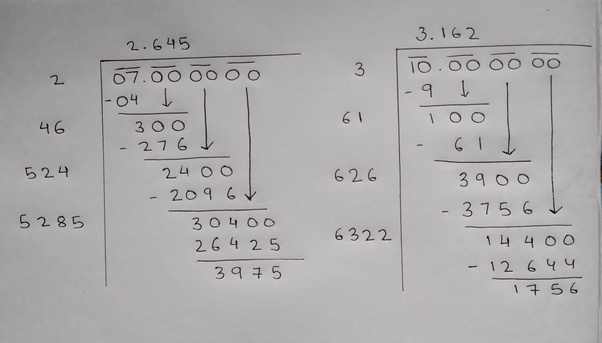 2.645
2 07.00 00 00
-04
46 300
- 276
524 2400
- 2096
5285 30400
26425
3975
3.162
3 10.00 00 00
- 9
61 100
- 61
626 3900
- 3756
6322 14400
- 12644
1756